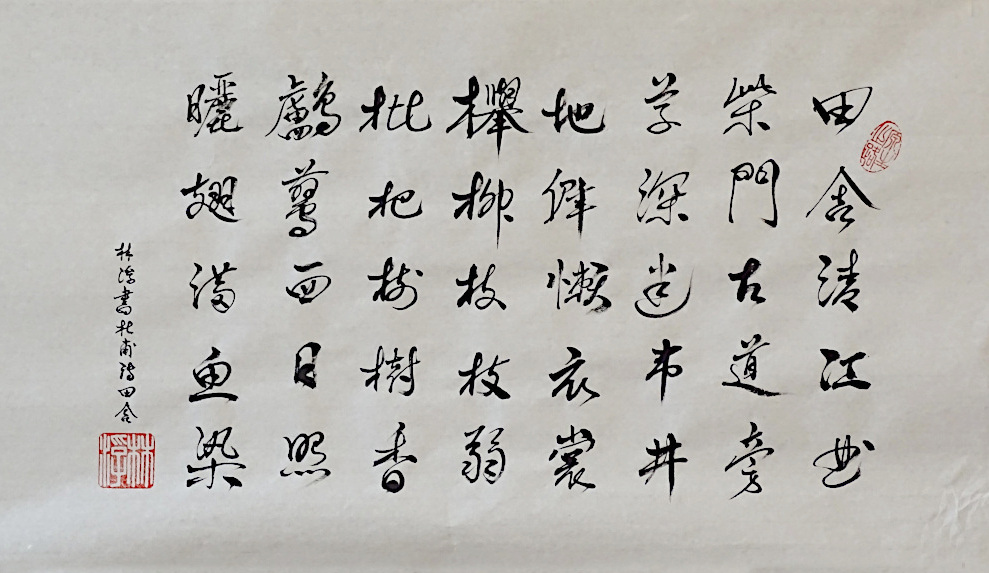 田舍清江曲
柴門古道旁
草深迷市井
地僻懶衣裳
櫸柳枝枝弱
枇杷樹樹香
鸕鶿西日照
曬翅滿魚梁
林書杜甫詩田舍
林